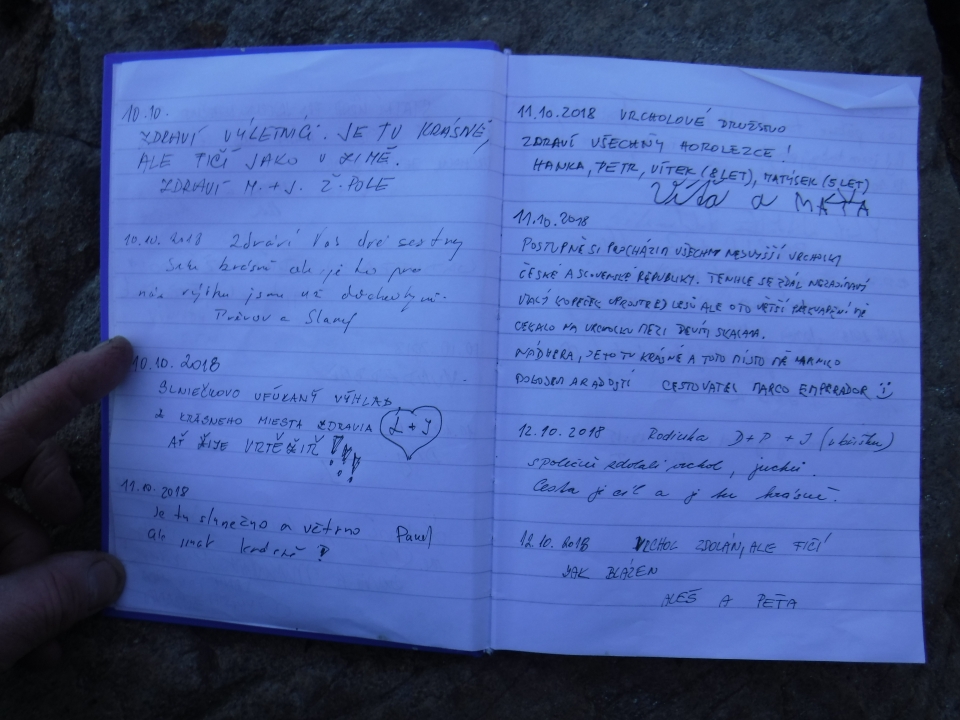 10.10.
ZDRAVÍ VÝLETNÍCI. JE TU KRÁSNĚ,
ALE FIČÍ JAKO V ZIMĚ.
ZDRAVÍ M. + J. Ž. POLE
10.10. 2018 Zdraví Vás dvě sestry
krásně ale je to pro
nás výška jsme už
a
10.10. 2018
SLNIEČKOVO UFÚKANÝ VÝHLAD
Z KRÁSNEHO MIESTA ZDRAVIA L + J
AŤ ŽIJE !!!
11.10. 2018
Je tu slunečno a větrno Pavel
ale jinak
11.10.2018 VRCHOLOVÉ DRUŽSTVO
ZDRAVÍ VŠECHNY HOROLEZCE!
HANKA, PETR, VÍTEK (8 LET), MATÝSEK (5 LET)
Víťa a MAŤA
11.10.2018
POSTUPNĚ SI PROCHÁZÍM VŠECHNY NEJVYŠŠÍ VRCHOLKY
ČESKÉ A SLOVENSKÉ REPUBLIKY. TENHLE SE ZDÁL NEZÁJÍMAVÝ
KOPEČEK UPROSTŘED LESŮ ALE O TO VĚTŠÍ PŘEKVAPENÍ MĚ
ČEKALO NA VRCHOLKU MEZI DEVÍTI SKALAMI.
NÁDHERA, JE TO TU KRÁSNÉ A TOTO MÍSTO MĚ
A RADOSTÍ CESTOVATEL MARCO EMPERADOR :)
12.10.2018 Rodinka D+P + J (v bříšku)
společně zdolali vrchol, juchů.
Cesta je cíl a je tu krásně.
12.10.2018 VRCHOL ZDOLÁN, ALE FIČÍ
JAK BLÁZEN
ALEŠ A PEŤA